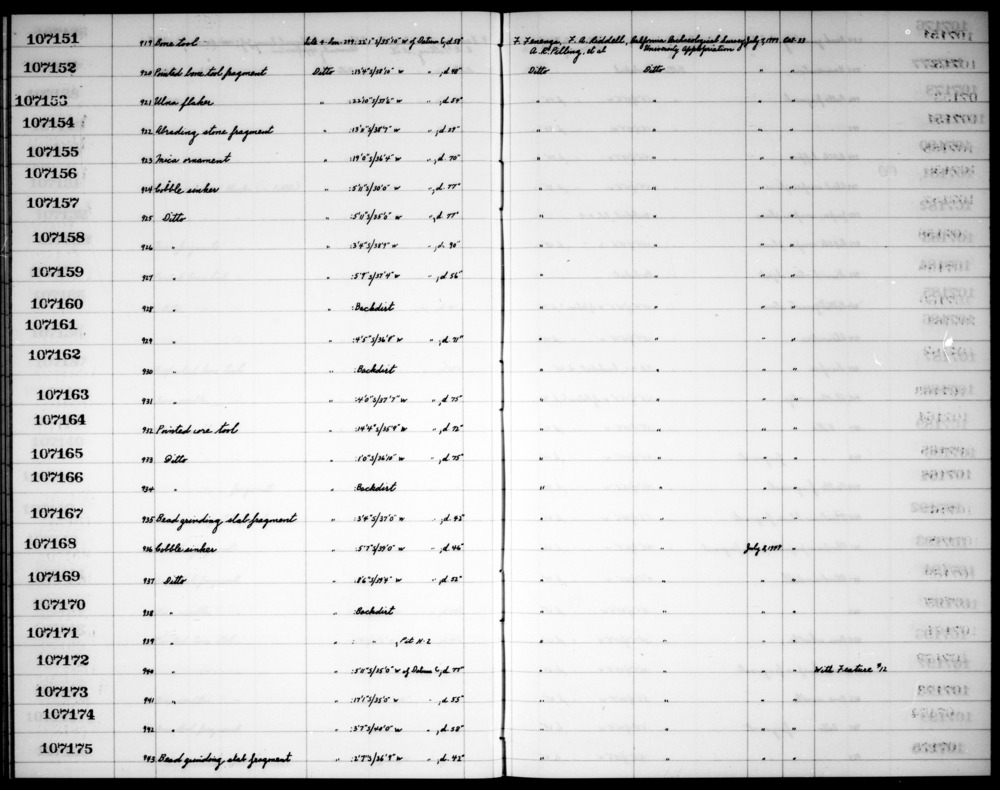 107151 919 Bone tool Site 4-Lan-249: 22'1"S/35'10" W of Datum C, d. 58" F. Fenenga, F. A. Riddell, California Archaeological Survey July 7, 1949. Cat. 23
A. R. Pilling, et al University Appropriations
107152 920 Pointed bone tool fragment Ditto :13'4"S/38'10" W ", d. 48" Ditto Ditto " "
107153 921 Ulna flaker " :22'0"S/37'6" W ", d. 54" " " " "
107154 922 Abrading stone fragment " :13'0"S/38'7" W ", d. 57" " " " "
107155 923 Mica ornament " :19'0"S/36'4" W ", d. 70" " " " "
107156 924 Cobble sinker " :5'0"S/30'0" W ", d. 77" " " " "
107157 925 Ditto " :5'0"S/35'6" W ", d. 77" " " " "
107158 926 " " :3'4"S/38'7" W ", d. 90" " " " "
107159 927 " " :5'7"S/37'4" W ", d. 56" " " " "
107160 928 " " :Backdirt " " " "
107161 929 " " :4'5"S/36'8" W ", d. 71" " " " "
107162 930 " " :Backdirt " " " "
107163 931 " " :4'0"S/37'7" W ", d. 75" " " " "
107164 932 Pointed core tool " :14'4"S/35'9" W ", d. 72" " " " "
107165 933 Ditto " :1'0"S/36'10" W ", d. 75" " " " "
107166 934 " " :Backdirt " " " "
107167 935 Bead grinding slab fragment " :3'4"S/37'0" W ", d. 43" " " " "
107168 936 Cobble sinker " :5'7"S/39'0" W ", d. 46" " " July 8, 1949 "
107169 937 Ditto " :8'6"S/39'4" W ", d. 52" " " " "
107170 938 " " :Backdirt " " " "
107171 939 " " : , Pit H-2 " " " "
107172 940 " " :5'0"S/35'0" W of Datum C, d. 77" " " " " With Feature #12
107173 941 " " :17'1"S/35'5" W ", d. 55" " " " "
107174 942 " " :3'7"S/40'0" W ", d. 58" " " " "
107175 943 Bead grinding slab fragment " :2'7"S/36'9" W ", d. 42" " " " "